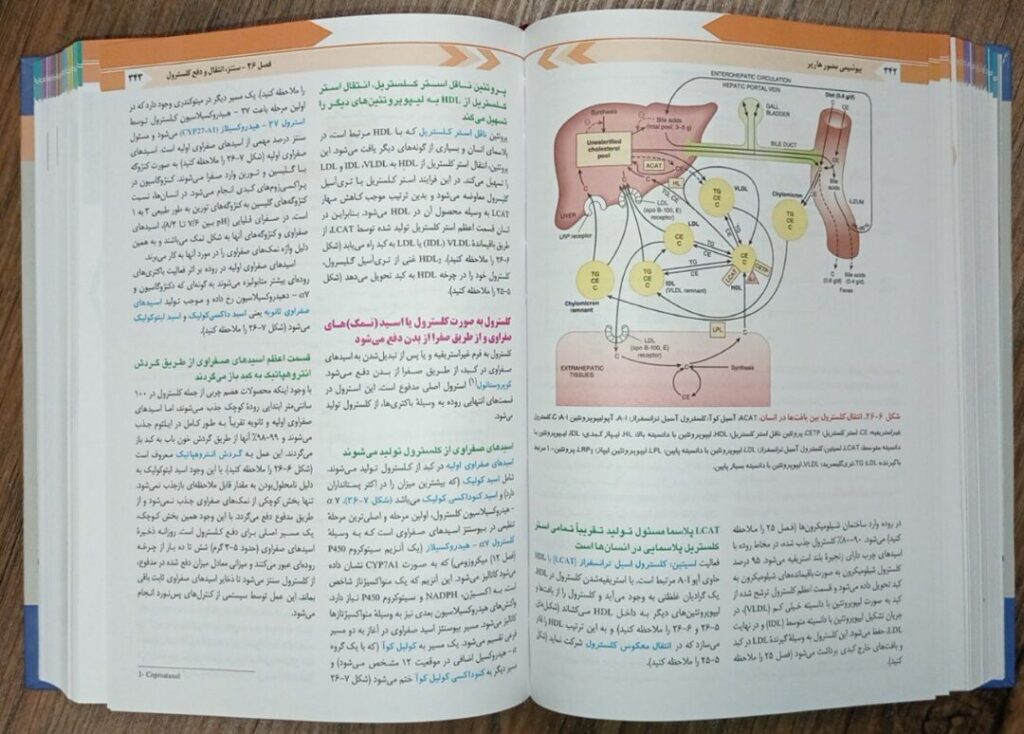 ۳۴۲
بیوشیمی مصور هارپر
ENTEROHEPATIC CIRCULATION
HEPATIC PORTAL VEIN
Diet (0.4 g/d)
C
CE
Synthesis
Bile acids
(total pool, 3–5 g)
GALL
BLADDER
Unesterified
cholesterol
pool
BILE DUCT
CE
C
Bile
acids
ACAT
HL
VLDL
TG
CE
C
Chylomicron
TG
CE
C
ILEUM
LDL
(apo B-100, E)
receptor
LIVER
LRP receptor
LDL
CE
C
TG
CE
TG
CE
CE
C
LCAT
CETP
HDL
TG
CE
C
TG
CE
C
IDL
(VLDL remnant)
Chylomicron
remnant
C
(0.6 g/d)
Bile acids
(0.4 g/d)
Feces
LPL
LDL
(apo B-100, E)
receptor
EXTRAHEPATIC
TISSUES
C
C
Synthesis
CE
شکل ۶-۲۶. انتقال کلسترول بین بافت‌ها در انسان. ACAT، آسیل کوآ: کلسترول آسیل ترانسفراز؛ A-I، آپولیپوپروتئین A-I؛ C، کلسترول
غیراستریفیه؛ CE، استر کلستریل؛ CETP، پروتئین ناقل استر کلستریل؛ HDL، لیپوپروتئین با دانسیته بالا؛ HL، لیپاز کبدی؛ IDL، لیپوپروتئین با
دانسیته متوسط؛ LCAT، لسیتین: کلسترول آسیل ترانسفراز؛ LDL، لیپوپروتئین با دانسیته پایین؛ LPL، لیپوپروتئین لیپاز؛ LRP، پروتئین-۱ مرتبط
با گیرنده LDL؛ TG، تری‌گلیسرید؛ VLDL، لیپوپروتئین با دانسیته بسیار پایین.
در روده وارد ساختمان شیلومیکرون‌ها (فصل ۲۵ را ملاحظه
کنید) می‌شود. ۹۰-۸۰٪ کلسترول جذب شده، در مخاط روده با
اسیدهای چرب دارای زنجیرهٔ بلند استریفیه می‌شود. ۹۵ درصد
کلسترول شیلومیکرون به صورت باقیمانده‌های شیلومیکرون به
کبد تحویل داده می‌شود و قسمت اعظم کلسترول ترشح شده از
کبد به صورت لیپوپروتئین با دانسیته خیلی کم (VLDL)، در
جریان تشکیل لیپوپروتئین با دانسیته متوسط (IDL) و در نهایت
LDL، حفظ می‌شود. این کلسترول به وسیلهٔ گیرندهٔ LDL در کبد
و بافت‌های خارج کبدی برداشت می‌شود (فصل ۲۵ را ملاحظه
کنید).
LCAT پلاسما مسئول تولید تقریباً تمامی استر
کلستریل پلاسمایی در انسان‌ها است
فعالیت لسیتین: کلسترول آسیل ترانسفراز (LCAT) با HDL
حاوی آپو A-I مرتبط است. با استریفیه‌شدن کلسترول در HDL،
یک گرادیان غلظتی به وجود می‌آید و کلسترول را از بافت‌ها و
لیپوپروتئین‌های دیگر به داخل HDL می‌کشاند (شکل‌های
۵-۲۶ و ۶-۲۶ را ملاحظه کنید) و به این ترتیب HDL را قادر
می‌سازد که در انتقال معکوس کلسترول شرکت نماید (شکل
۵-۲۵ را ملاحظه کنید).
فصل ۲۶ - سنتز، انتقال و دفع کلسترول
۳۴۳
پروتئین ناقل استر کلستریل، انتقال استر
کلستریل از HDL به لیپوپروتئین‌های دیگر را
تسهیل می‌کند
پروتئین ناقل استر کلستریل که با HDL مرتبط است، در
پلاسمای انسان و بسیاری از گونه‌های دیگر یافت می‌شود. این
پروتئین، انتقال استر کلستریل از HDL به VLDL، IDL و LDL
را تسهیل می‌کند. در این فرایند استر کلستریل با تری‌آسیل
گلیسرول معاوضه می‌شود و بدین ترتیب موجب کاهش مهار
LCAT به وسیله محصول آن در HDL می‌شود. بنابراین در
انسان قسمت اعظم استر کلستریل تولید شده توسط LCAT، از
طریق باقیماندهٔ VLDL (IDL) یا LDL به کبد راه می‌یابد (شکل
۶-۲۶ را ملاحظه کنید). HDL2 غنی از تری‌آسیل گلیسرول،
کلسترول خود را در چرخه HDL به کبد تحویل می‌دهد (شکل
۵-۲۵ را ملاحظه کنید).
کلسترول به صورت کلسترول یا اسید (نمک)های
صفراوی و از طریق صفرا از بدن دفع می‌شود
کلسترول به فرم غیراستریفیه و یا پس از تبدیل‌شدن به اسیدهای
صفراوی در کبد، از طریق صفرا از بدن دفع می‌شود.
کوپروستانول(۱) استرول اصلی مدفوع است. این استرول در
قسمت‌های انتهایی روده به وسیلهٔ باکتری‌ها، از کلسترول تولید
می‌شود.
اسیدهای صفراوی از کلسترول تولید می‌شوند
اسیدهای صفراوی اولیه در کبد از کلسترول تولید می‌شوند.
شامل اسید کولیک (که بیشترین میزان را در اکثر پستانداران
دارد) و اسید کنوداکسی کولیک می‌باشد (شکل ۷-۲۶). ۷α
- هیدروکسیلاسیون کلسترول، اولین مرحله و اصلی‌ترین مرحلهٔ
تنظیمی در بیوسنتز اسیدهای صفراوی است که به وسیلهٔ
کلسترول ۷α - هیدروکسیلاز (یک آنزیم سیتوکروم P450
(فصل ۱۲) میکروزومی) که به صورت CYP7A1 نشان داده
می‌شود کاتالیز می‌شود. این آنزیم که یک منواکسیژناز شاخص
است، به اکسیژن، NADPH و سیتوکروم P450 نیاز دارد.
واکنش‌های هیدروکسیلاسیون بعدی نیز به وسیلهٔ منواکسیژنازها
کاتالیز می‌شود. مسیر بیوسنتز اسید صفراوی در آغاز به دو مسیر
فرعی تقسیم می‌شود. یک مسیر به کولیل کوآ (که با یک گروه
α - هیدروکسیل اضافی در موقعیت ۱۲ مشخص می‌شود) و
مسیر دیگر به کنوداکسی کولیل کوآ ختم می‌شود (شکل ۷-۲۶
را ملاحظه کنید). یک مسیر دیگر در میتوکندری وجود دارد که در
اولین مرحله باعث ۲۷ - هیدروکسیلاسیون کلسترول توسط
استرول ۲۷ - هیدروکسیلاز (CYP27A1) می‌شود و مسئول
سنتز درصد مهمی از اسیدهای صفراوی اولیه است. اسیدهای
صفراوی اولیه (شکل ۷-۲۶ را ملاحظه کنید) به صورت کنژوگه
با گلیسین و تورین وارد صفرا می‌شوند. کنژوگاسیون در
پراکسی‌زوم‌های کبدی انجام می‌شود. در انسان‌ها، نسبت
کنژوگه‌های گلیسین به کنژوگه‌های تورین به طور طبیعی ۳ به ۱
است. در صفرای قلیایی (pH بین ۷/۶ تا ۸/۴)، اسیدهای
صفراوی و کنژوگه‌های آنها به شکل نمک می‌باشند و به همین
دلیل واژه نمک‌های صفراوی را در مورد آنها به کار می‌برند.
اسیدهای صفراوی اولیه در روده بر اثر فعالیت باکتری‌های
روده‌ای بیشتر متابولیزه می‌شوند به گونه‌ای که دکنژوگاسیون و
۷α - دهیدروکسیلاسیون رخ داده و موجب تولید اسیدهای
صفراوی ثانویه یعنی اسید داکسی‌کولیک و اسید لیتوکولیک
می‌شود (شکل ۷-۲۶ را ملاحظه کنید).
قسمت اعظم اسیدهای صفراوی از طریق گردش
انتروهپاتیک به کبد باز می‌گردند
با وجود اینکه محصولات هضم چربی از جمله کلسترول در ۱۰۰
سانتی‌متر ابتدایی رودهٔ کوچک جذب می‌شوند، اما اسیدهای
صفراوی اولیه و ثانویه تقریباً به طور کامل در ایلئوم جذب
می‌شوند و ۹۹-۹۸٪ آنها از طریق گردش خون باب به کبد باز
می‌گردند. این عمل به گردش انتروهپاتیک معروف است
(شکل ۶-۲۶ را ملاحظه کنید). با این وجود اسید لیتوکولیک به
دلیل نامحلول‌بودن به مقدار قابل ملاحظه‌ای بازجذب نمی‌شود.
تنها بخش کوچکی از نمک‌های صفراوی جذب نمی‌شود و از
طریق مدفوع دفع می‌گردد. با این وجود همین بخش کوچک،
یک مسیر اصلی برای دفع کلسترول است. روزانه ذخیرهٔ
اسیدهای صفراوی (حدود ۵-۳ گرم) شش تا ده بار از چرخه
روده‌ای عبور می‌کنند و میزانی معادل میزان دفع شده در مدفوع،
از کلسترول سنتز می‌شود تا ذخایر اسیدهای صفراوی ثابت باقی
بماند. این عمل توسط سیستمی از کنترل‌های پس‌نورد انجام
می‌شود.
1- Coprostanol